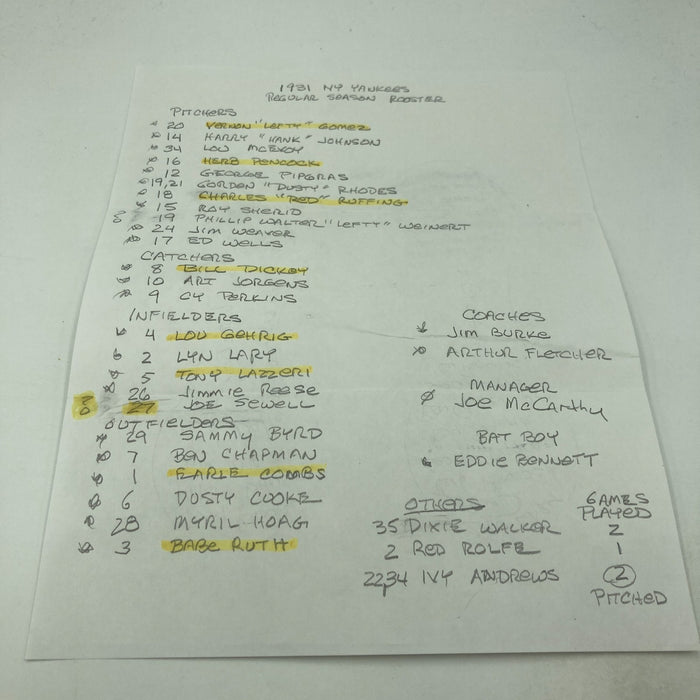 1931 NY YANKEES
REGULAR SEASON ROOSTER
PITCHERS
20 VERNON "LEFTY" GOMEZ
14 HARRY "HANK" JOHNSON
34 LOU McEVOY
16 HERB PENCOCK
12 GEORGE PIPGRAS
19,21 GORDON "DUSTY" RHODES
18 CHARLES "RED" RUFFING
15 ROY SHERID
19 PHILLIP WALTER "LEFTY" WEINERT
24 JIM WEAVER
17 ED WELLS
CATCHERS
8 BILL DICKEY
10 ART JORGENS
9 CY PERKINS
INFIELDERS
4 LOU GEHRIG
2 LYN LARY
5 TONY LAZZERI
26 JIMMIE REESE
27 JOE SEWELL
OUTFIELDERS
29 SAMMY BYRD
7 BEN CHAPMAN
1 EARLE COMBS
6 DUSTY COOKE
28 MYRIL HOAG
3 BABE RUTH
COACHES
JIM BURKE
ARTHUR FLETCHER
MANAGER
JOE McCARTHY
BAT BOY
EDDIE BENNETT
OTHERS GAMES PLAYED
35 DIXIE WALKER 2
2 RED ROLFE 1
22,34 IVY ANDREWS 2
PITCHED